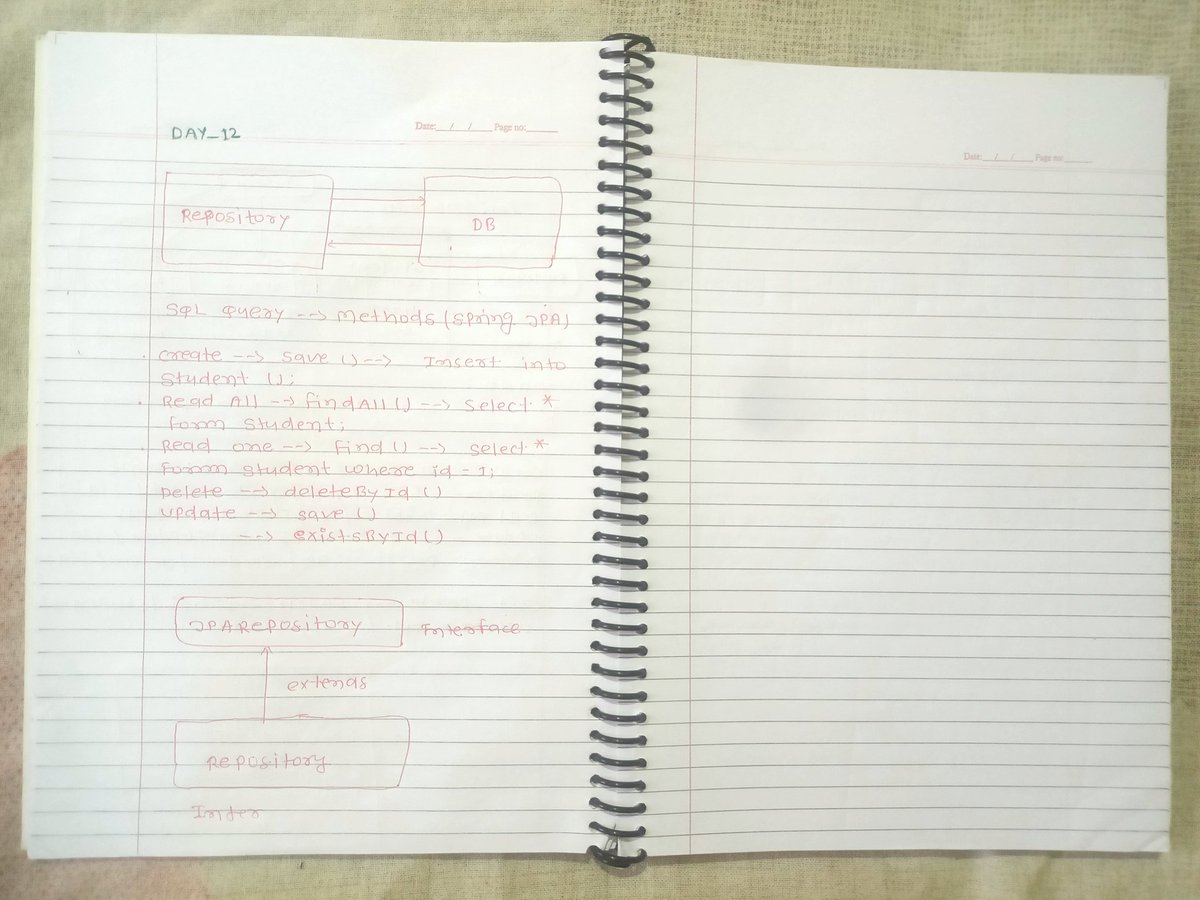 DAY_12
Date: / / Page no:
Date: / / Page no:
Repository
DB
SQL Query --> Methods (Spring JPA)
Create --> save () --> Insert into
Student ();
Read All --> findAll () --> Select *
form Student;
Read one --> find () --> select *
form student where id = 1;
Delete --> deleteById ()
Update --> save ()
--> existsById ()
JPARepository
Interface
extends
Repository
Inter